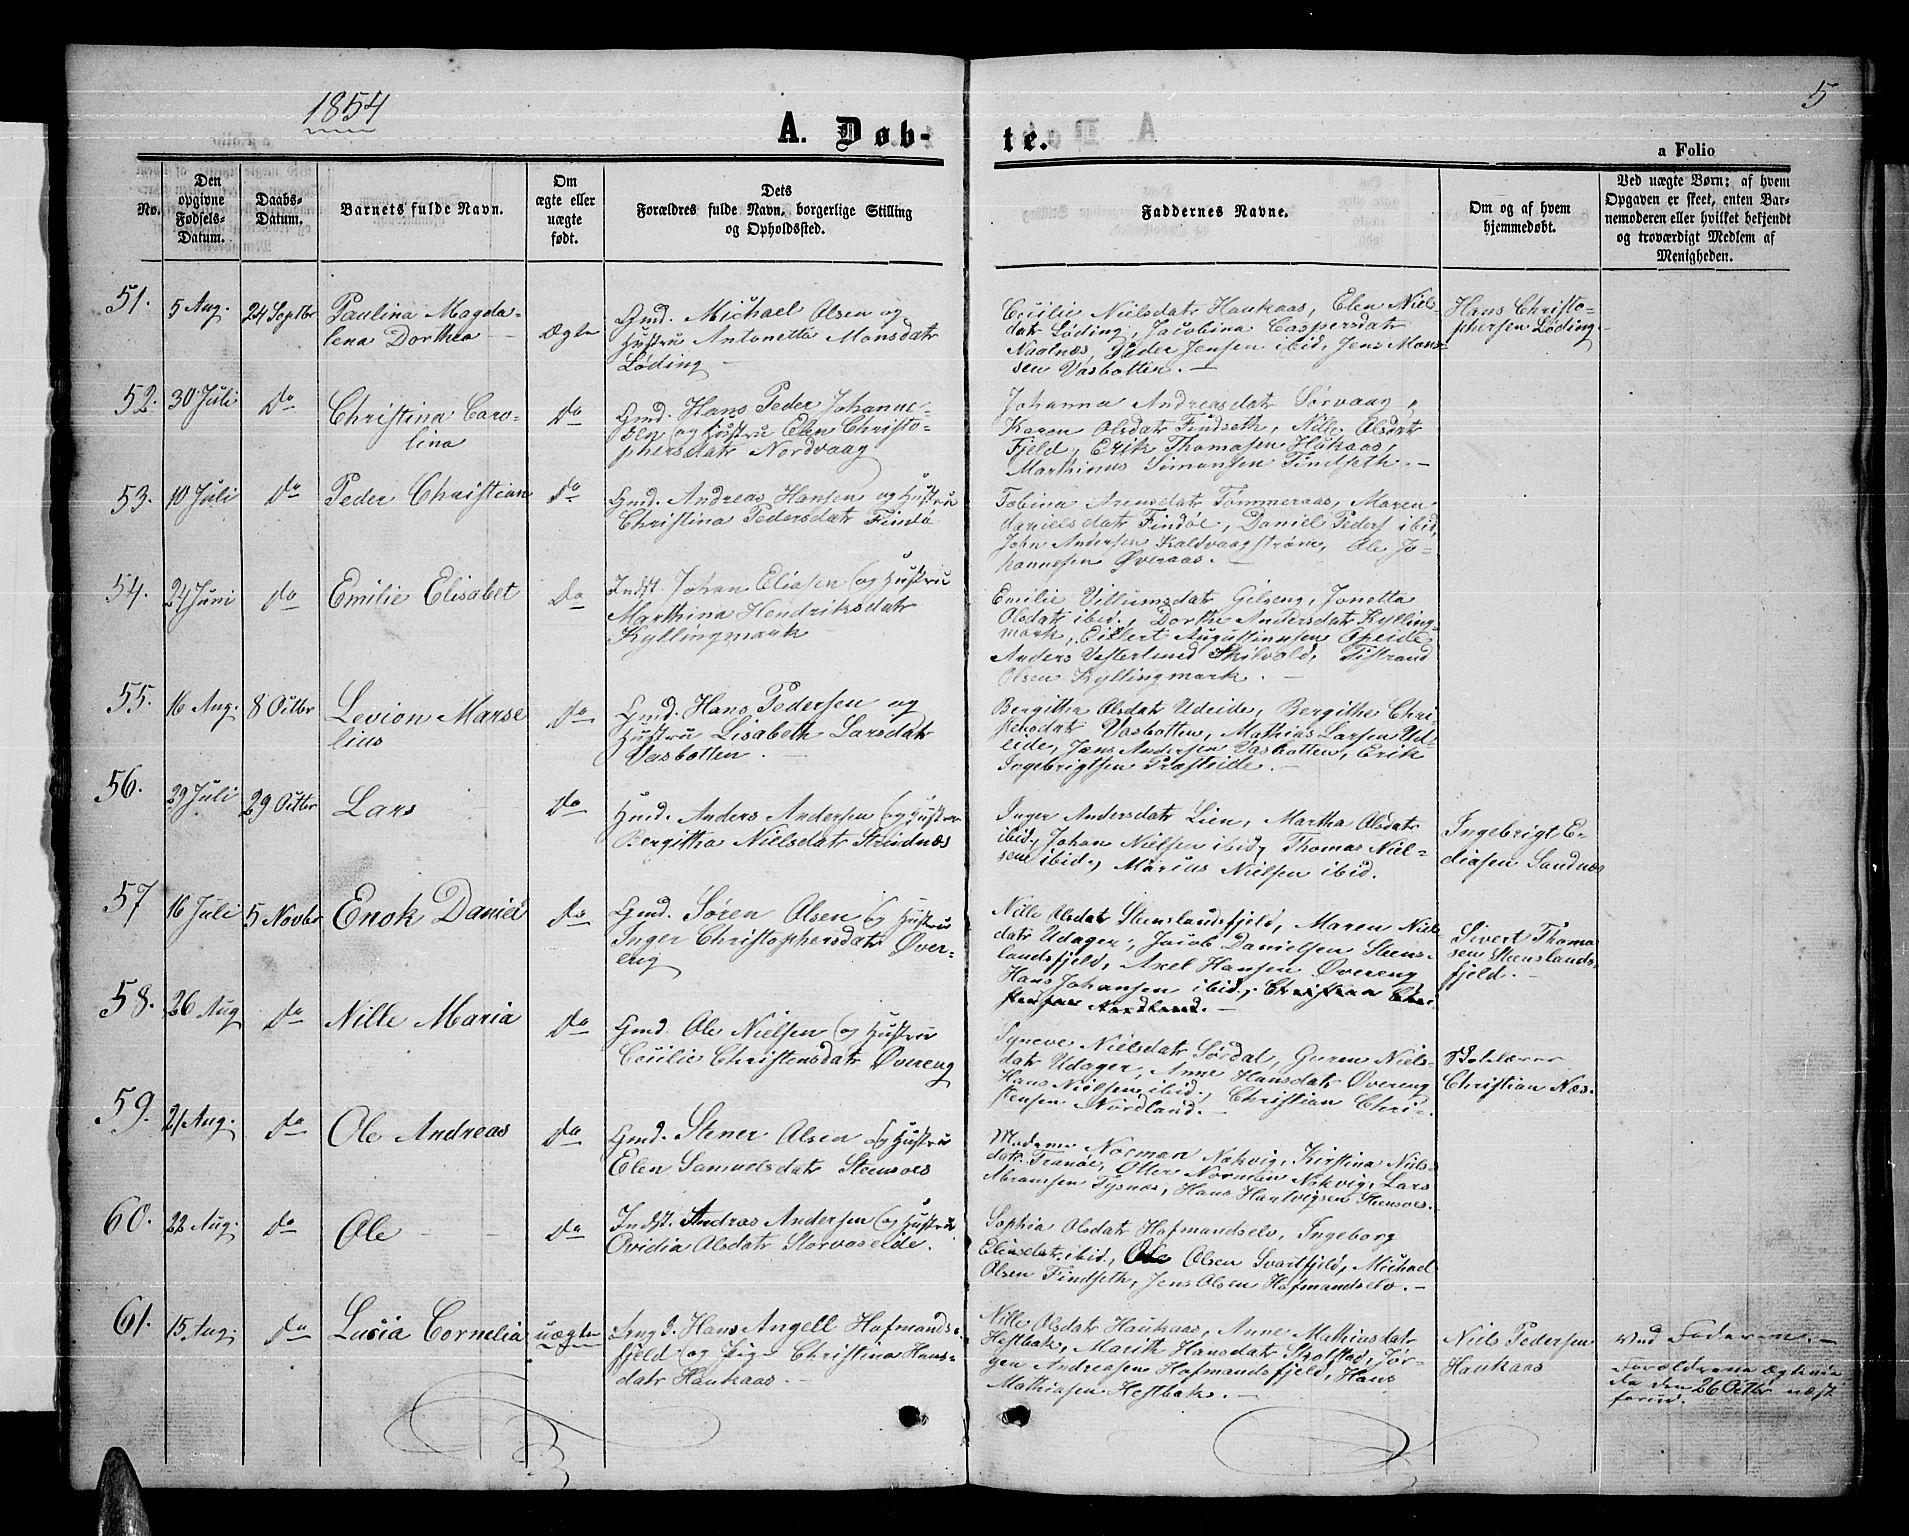 1854
5
A. Døb-
te.
a Folio
No.
Den
opgivne
Fødsels-
Datum.
Daabs-
Datum.
Barnets fulde Navn.
Om
ægte eller
uægte
født.
Dets
Forældres fulde Navn, borgerlige Stilling
og Opholdssted.
Faddernes Navne.
Om og af hvem
hjemmedøbt.
Ved uægte Børn: af hvem
Opgaven er skeet, enten Bar-
nemoderen eller hvilket bekjendt
og troværdigt Medlem af
Menigheden.
51.
5 Aug.
24 Septbr
Paulina Magda-
lena Dorthea
Ægte
Gmd. Michael Olsen og
Hustru Antonetta Monsdatr
Løding
Cecilie Nielsdatr Haukaas, Elen Niels
datr Løding, Jacobina Caspersdatr
Naalnæs, Peder Jensen ibid, Jens Mon-
sen Vasbotten.
Hans Christo-
phersen Løding
52.
30 Juli
Do
Christina Caro-
lina
Do
Gmd. Hans Peder Johanne-
sen og Hustru Elen Christo-
phersdatr Nordvaag
Johanna Andreasdatr Sørvaag,
Karen Olsdatr Findseth, Nille Olsdatr
Fjeld, Erik Thomasen Hakaas,
Marthinus Simonsen Findseth.
53.
10 Juli
Do
Peder Christian
Do
Gmd. Andreas Hansen og Hustru
Christina Pedersdatr Findø
Tobina Arensdatr Tømmeraas, Maren
danielsdatr Findøe, Daniel Peders ibid,
John Andersen Kaldvaagstrøm, Ole Jo-
hannesen Øveraas.
54.
24 Juni
Do
Emilie Elisabet
Do
Indst. Johan Eliasen og Hustru
Marthina Hendriksdatr
Kyllingmark
Emilie Villumsdatr Gilseng, Jonetta
Olsdatr ibid, Dorthe Andersdatr Kylling-
mark, Eilert Augustinusen Opeide
Anders Vesterlund Skilvold, Tistrand
Olsen Kyllingmark.
55.
16 Aug.
8 Octbr
Levion Marse
lius
Do
Gmd. Hans Pedersen og
Hustru Lisabeth Larsdatr
Vasbotten.
Bergitha Olsdatr Udeide, Bergithe Chri-
stensdatr Vasbotten, Mathias Larsen Ud-
eide, Jens Andersen Vasbotten, Erik
Ingebrigtsen Præsteide.
56.
29 Juli
29 Octbr
Lars
Do
Hmd. Anders Andersen og Hustru
Bergitha Nielsdatr Strindnæs
Inger Andersdatr Lien, Martha Olsdatr
ibid, Johan Nielsen ibid, Thomas Niel-
sen ibid, Marius Nielsen ibid.
Ingebrigt E-
liasen Sandnæs
57
16 Juli
5 Novbr
Enok Daniel
Do
Gmd. Søren Olsen og Hustru
Inger Christophersdatr Øver-
eng
Nille Olsdatr Steenslandsfjeld, Maren Niels
datr Udager, Jacob Danielsen Steens-
landsfjeld, Axel Hansen Øvereng
Hans Johansen ibid, Christian Chri-
stensen Nordland.
Sivert Thoma
sen Steenslands-
fjeld.
58.
26 Aug
Do
Nille Maria
Do
Gmd. Ole Nielsen og Hustru
Cecilie Christensdatr Øvereng
Synøve Nielsdatr Sørdal, Guren Niels-
datr Udager, Anne Hansdatr Øvereng
Hans Nielsen ibid, Christian Chri-
stensen Nordland.
Skolelærer
Christian Næs.
59.
21 Aug.
Do
Ole Andreas
Do
Gmd. Stener Olsen og Hustru
Elen Samuelsdatr Steensoes
Madame Norman Nokvig, Kirstina Niels
datr Tranøe, Otter Norman Nokvig, Lars
Abramsen Tysnæs, Hans Hartvigsen Steensoes.
60.
22 Aug.
Do
Ole
Do
Indst. Andras Andersen og Hustru
Ovidia Olsdatr Storvaseide.
Sophia Olsdatr Hofmandselv, Ingeborg
Eliasdatr ibid, Ole Olsen Svartfjeld, Michael
Olsen Findseth, Jens Olsen Hofmandselv.
61.
15 Aug.
Do
Lusia Cornelia
uægte
Ungd. Hans Angell Hofmands-
fjeld og Pig. Christina Hans-
datr Haukaas.
Nille Olsdatr Haukaas, Anne Mathiasdatr
Hestbak, Marith Hansdatr Skolstad, Jør-
gen Andreasen Hofmandsfjeld, Hans
Mathiasen Hestbak.
Niels Pedersen
Haukaas
Ved Faderen.
Forældrene Ægtevie
de den 26 Octbr næst
forud.